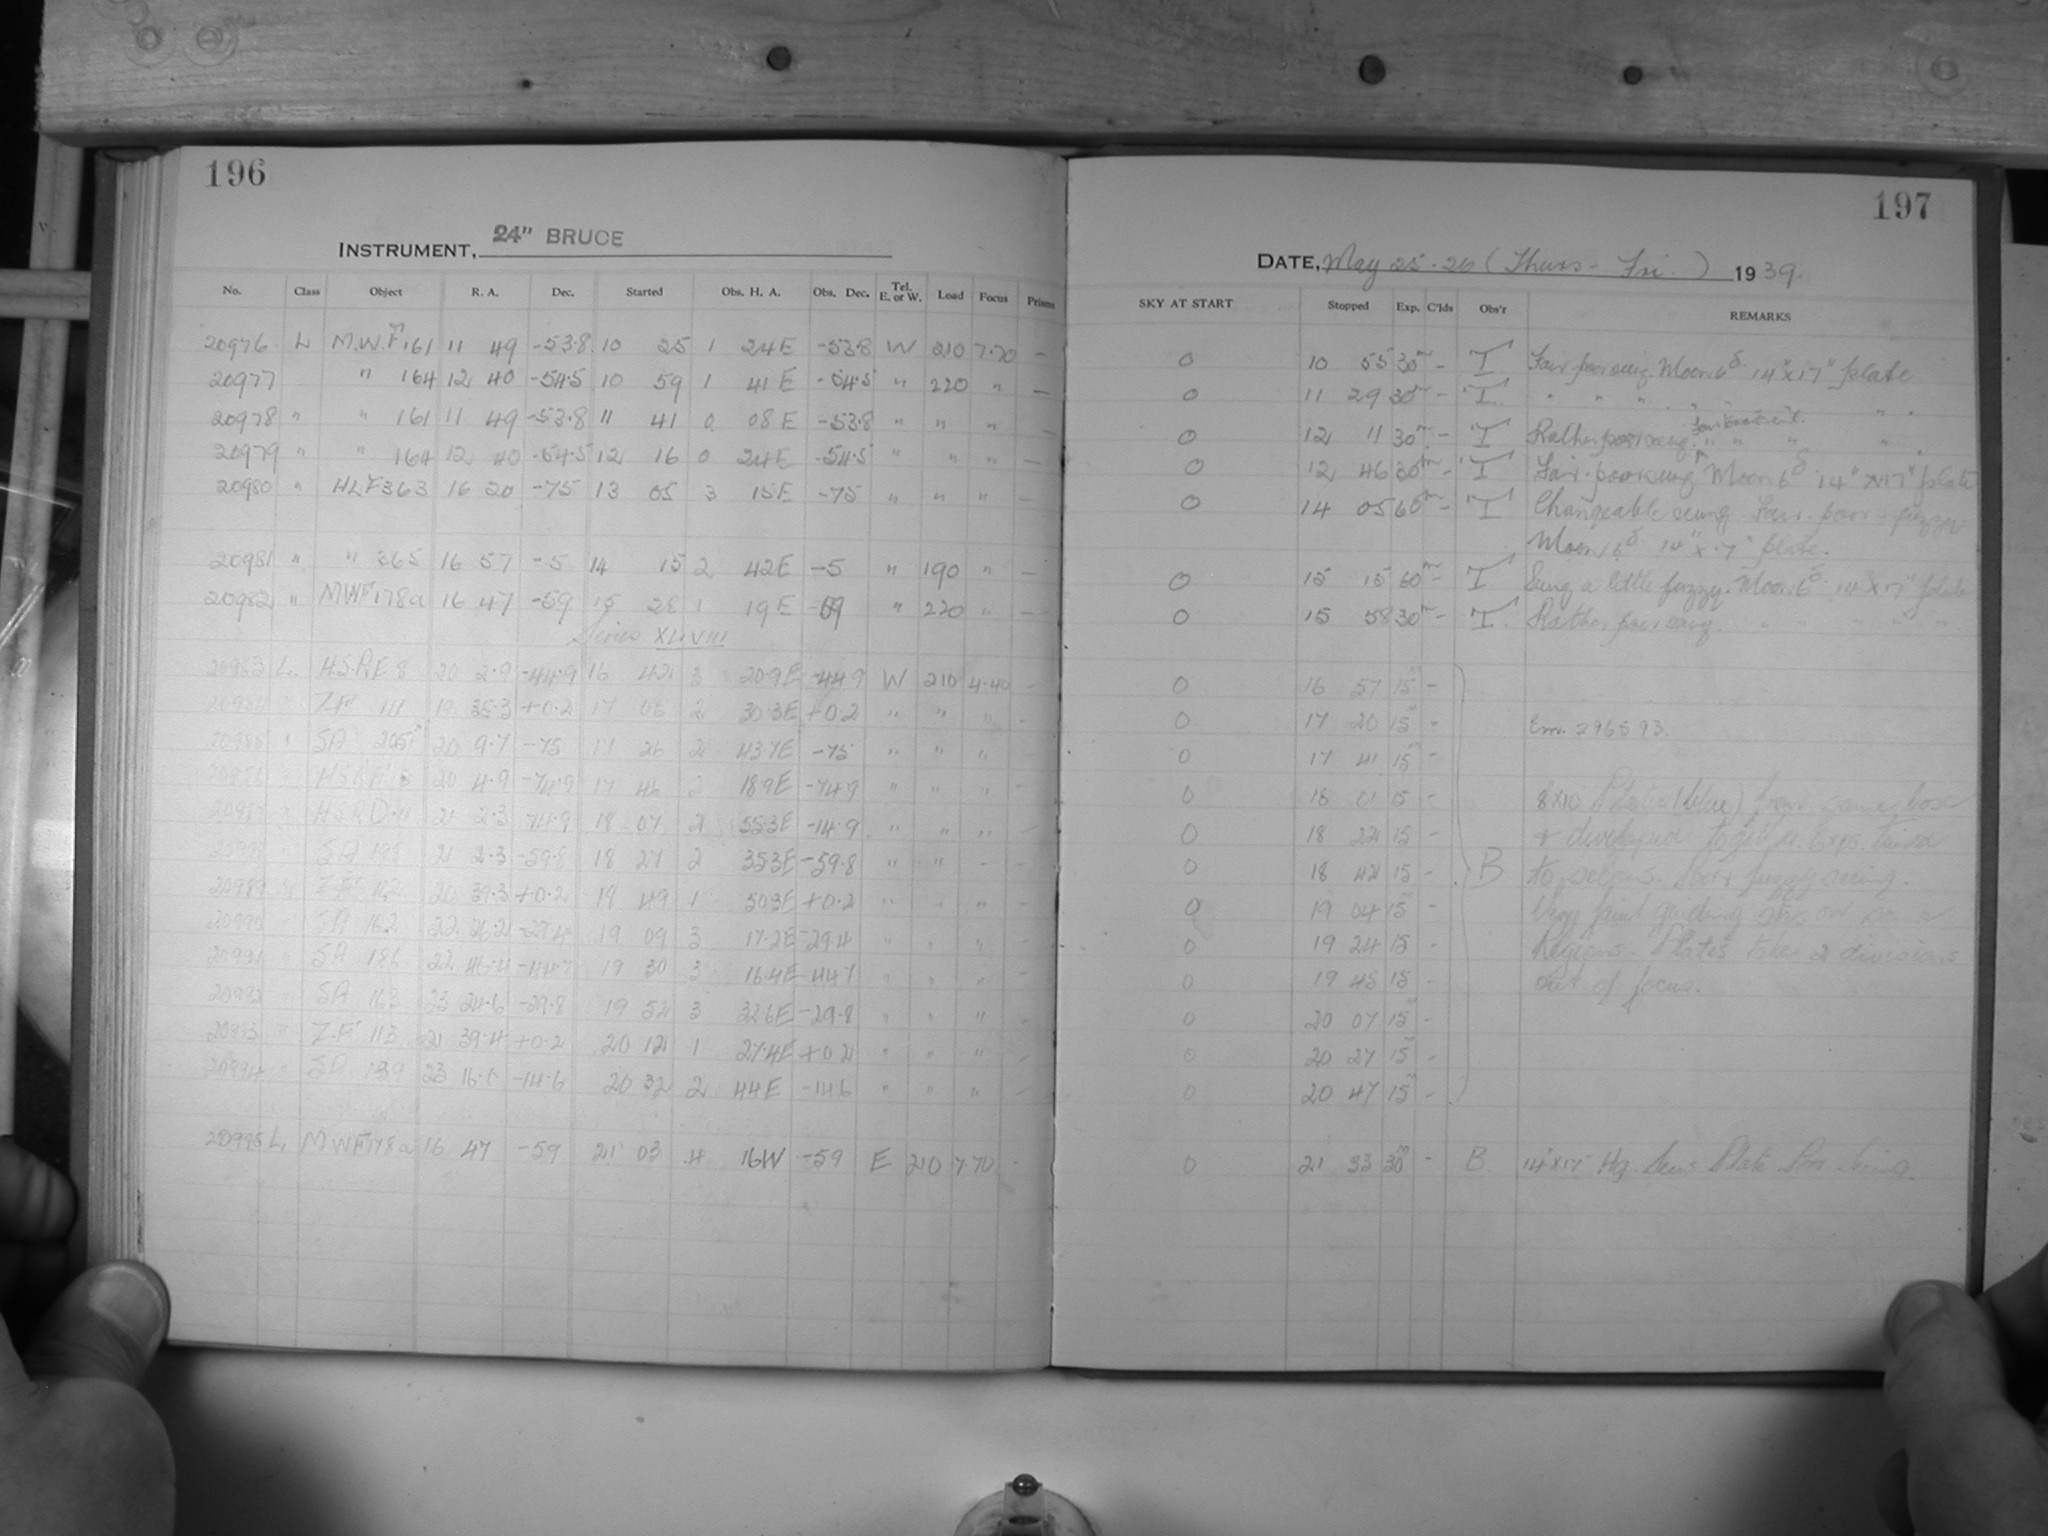 196
INSTRUMENT, 24" BRUCE
No. Class Object R. A. Dec. Started Obs. H. A. Obs. Dec. Tel. E. or W. Load Focus Prisms
20976 L M.W.F 161 11 49 -53.8 10 25 1 24E -53.8 W 210 7.70 -
20977 " 164 12 40 -54.5 10 59 1 41E -54.5 " 220 " -
20978 " " 161 11 49 -53.8 11 41 0 08E -53.8 " " " -
20979 " " 164 12 40 -54.5 12 16 0 24E -54.5 " " " -
20980 " HLF 363 16 20 -75 13 05 3 15E -75 " " " -
20981 " " 365 16 57 -5 14 15 2 42E -5 " 190 " -
20982 " MWF 178a 16 47 -59 15 28 1 19E -59 " 220 " -
Series XLVIII
20983 L. HSRE 8 20 2.9 -44.9 16 42 3 20.9E -44.9 W 210 4.40 -
20984 " ZF 111 19 35.3 +0.2 17 05 2 30.3E +0.2 " " " -
20985 " SA 205 20 9.7 -75 17 26 2 43.7E -75 " " "
20986 " 20 4.9 -74.9 17 46 2 18.9E -74.9 " " " -
20987 " HSRD 11 21 2.3 18 07 2 55.3E -14.9 " " " -
SA 21 2.3 -59.8 18 27 2 35.3E -59.8 " " - -
20989 " ZF 112 20 39.3 +0.2 18 49 1 50.3E +0.2 " " " -
20990 " SA 162 22 26.2 -29.4 19 09 3 17.2E -29.4 " " " -
20991 " SA 186 22 46.4 -44.7 19 30 3 16.4E -44.7 " " " -
20992 " SA 163 23 24.6 -29.8 19 52 3 32.6E -29.8 " " " -
20993 " Z.F 113 21 39.4 +0.2 20 12 1 27.4E +0.2 " " " -
20994 " SA 139 23 16.1 -14.6 20 32 2 44E -14.6 " " " -
20995 L MWF 178a 16 47 -59 21 03 4 16W -59 E 210 7.70 -
197
DATE, May 25-26 (Thurs - Fri.) 1939.
SKY AT START Stopped Exp. C'lds Obs'r REMARKS
0 10 55 30m - T Fair-poor seeing. Moon 6d 14" x 17" plate
0 11 29 30m - T " " " " " "
0 12 11 30m - T Rather poor seeing " " " "
0 12 46 30m - T Fair-poor seeing Moon 6d 14" x 17" plate
0 14 05 60m - T Changeable seeing Fair-poor-fuzzy
Moon 6d 14" x 17" plate.
0 15 15 60m - T Seeing a little fuzzy. Moon 6d 14" x 17" plate
0 15 58 30m - T Rather poor seeing. " " " " "
0 16 57 15m -
0 17 20 15m - Em. 296593.
0 17 41 15m -
0 18 01 15 - 8x10 Plates (blue) from same box
0 18 22 15 - + developed together.
0 18 42 15 - B fuzzy seeing.
0 19 04 15m - Very faint guiding stars on
0 19 24 15 - Regions. Plates taken 2 divisions
0 19 45 15 - out of focus.
0 20 07 15m -
0 20 27 15m -
0 20 47 15m -
0 21 33 30m - B. 14" x 17" Hg. Sens. Plate Poor Seeing.